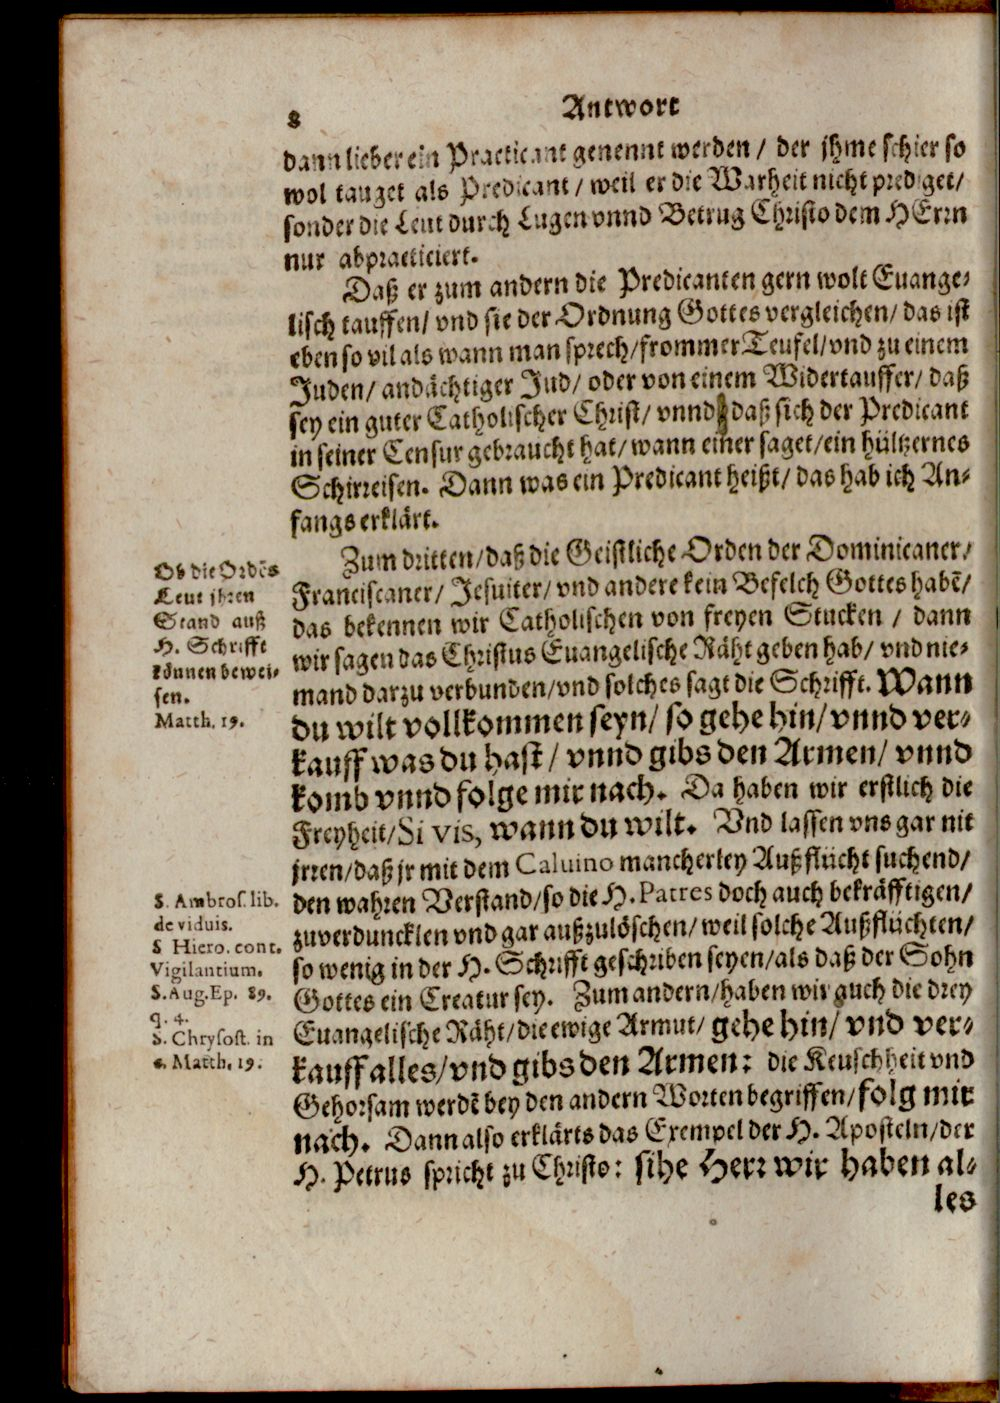 8
Antwort
dann lieber ein Practicant genennt werden / der jhme schier so
wol tauget als Predicant / weil er die Warheit nicht prediget/
sonder die Leut durch Lugen vnnd Betrug Christo dem HErrn
nur abpracticiert.
Daß er zum andern die Predicanten gern wolt Euange-
lisch tauffen/ vnd sie der Ordnung Gottes vergleichen/ das ist
eben so vil als wann man sprech/frommer Teufel/vnd zu einem
Juden/ andächtiger Jud/ oder von einem Widertauffer/ daß
sey ein guter Catholischer Christ/ vnnd daß sich der Predicant
in seiner Censur gebraucht hat/ wann einer saget/ein hültzernes
Schirreisen. Dann was ein Predicant heißt/ das hab ich An-
fangs erklärt.
Zum dritten/daß die Geistliche Orden der Dominicaner/
Franciscaner/ Jesuiter/ vnd andere kein Befelch Gottes habē/
das bekennen wir Catholischen von freyen Stucken / dann
wir sagen das Christus Euangelische Räht geben hab/ vnd nie-
mand darzu verbunden/vnd solches sagt die Schrifft. Wann
du wilt vollkommen seyn/ so gehe hin/ vnnd ver-
kauff was du hast / vnnd gibs den Armen/ vnnd
komb vnnd folge mir nach. Da haben wir erstlich die
Freyheit/Si vis, wann du wilt. Vnd lassen vns gar nit
jrren/daß jr mit dem Caluino mancherley Außflücht suchend/
den wahren Verstand/so die H. Patres doch auch bekräfftigen/
zuverduncklen vnd gar außzulöschen/ weil solche Außflüchten/
so wenig in der H. Schrifft geschriben seyen/als daß der Sohn
Gottes ein Creatur sey. Zum andern/haben wir auch die drey
Euangelische Räht/die ewige Armut/ gehe hin/ vnd ver-
kauff alles/vnd gibs den Armen: die Keuschheit vnd
Gehorsam werdē bey den andern Worten begriffen/folg mir
nach. Dann also erklärts das Exempel der H. Aposteln/der
H. Petrus spricht zu Christo: sihe Herr wir haben al-
les
Ob die Ordēs
Leut jhren
Stand auß
H. Schrifft
können bewei-
sen.
Matth. 19.
S. Ambros. lib.
de viduis.
S Hiero. cont.
Vigilantium.
S. Aug. Ep. 89.
q. 4.
S. Chrysost. in
c. Matth. 19.